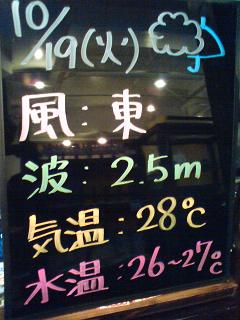 10/19(火)
風:東
波:2.5m
気温:28℃
水温:26~27℃